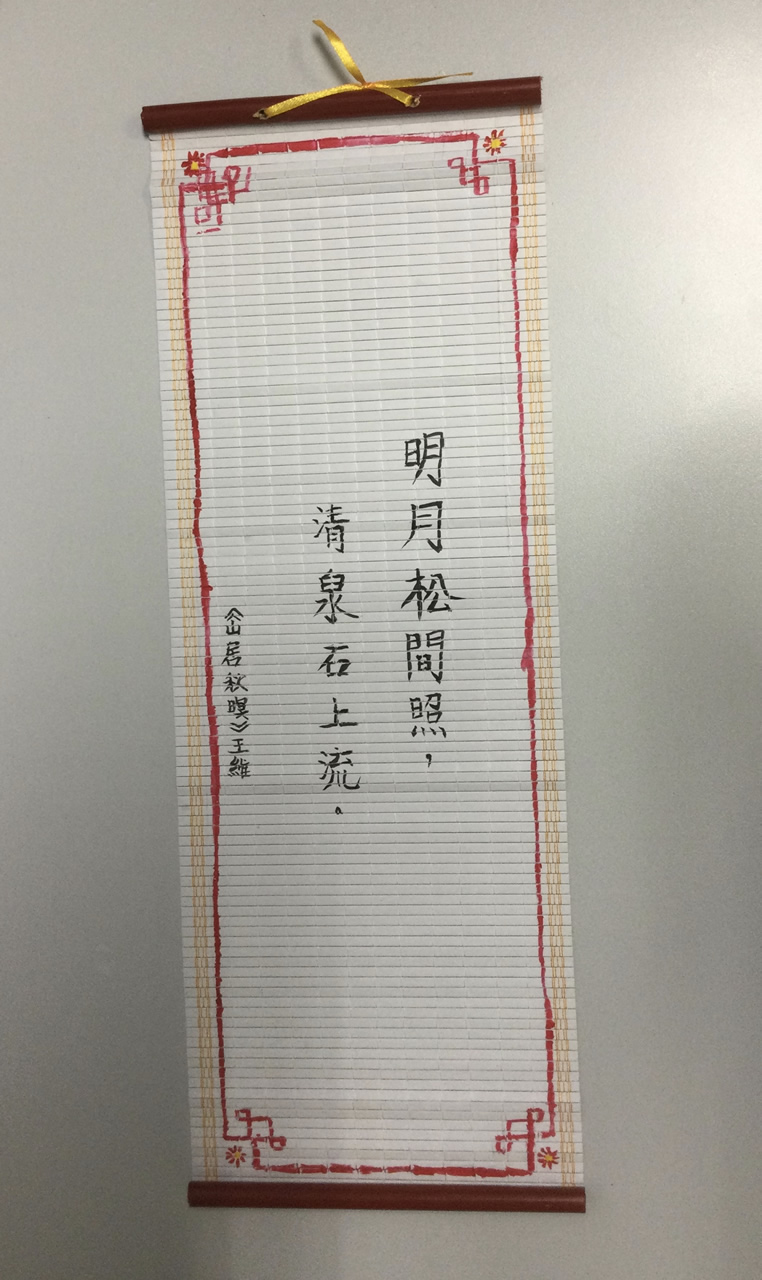 明月松間照，
清泉石上流。
《山居秋暝》王維